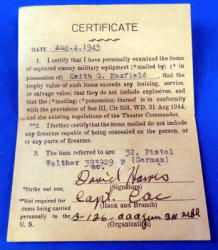 CERTIFICATE
DATE Aug. 4. 1945
1. I certify that I have personally examined the items
of captured enemy military equipment (*mailed by) (* in
possession of) Keith G. Maxfield, that the
trophy value of such items exceeds any training, service,
or salvage value; that they do not include explosives, and
that the (*mailing) (possession) thereof is in conformity
with the provisions of Sec III, Cir 353, WD, 31 Aug 1944,
and the existing regulations of the Theater Commander.
**2. I further certify that the items mailed do not include
any firearms capable of being concealed on the person, or
or any parts of firearms.
3. The items referred to are: 32, Pistol
Walther P (German)
David
*Strike out one.
(Signature)
Capt. Cac
**Not required for
items being carried
personally to the
U. S.
(Rank and Branch)
(Organization)